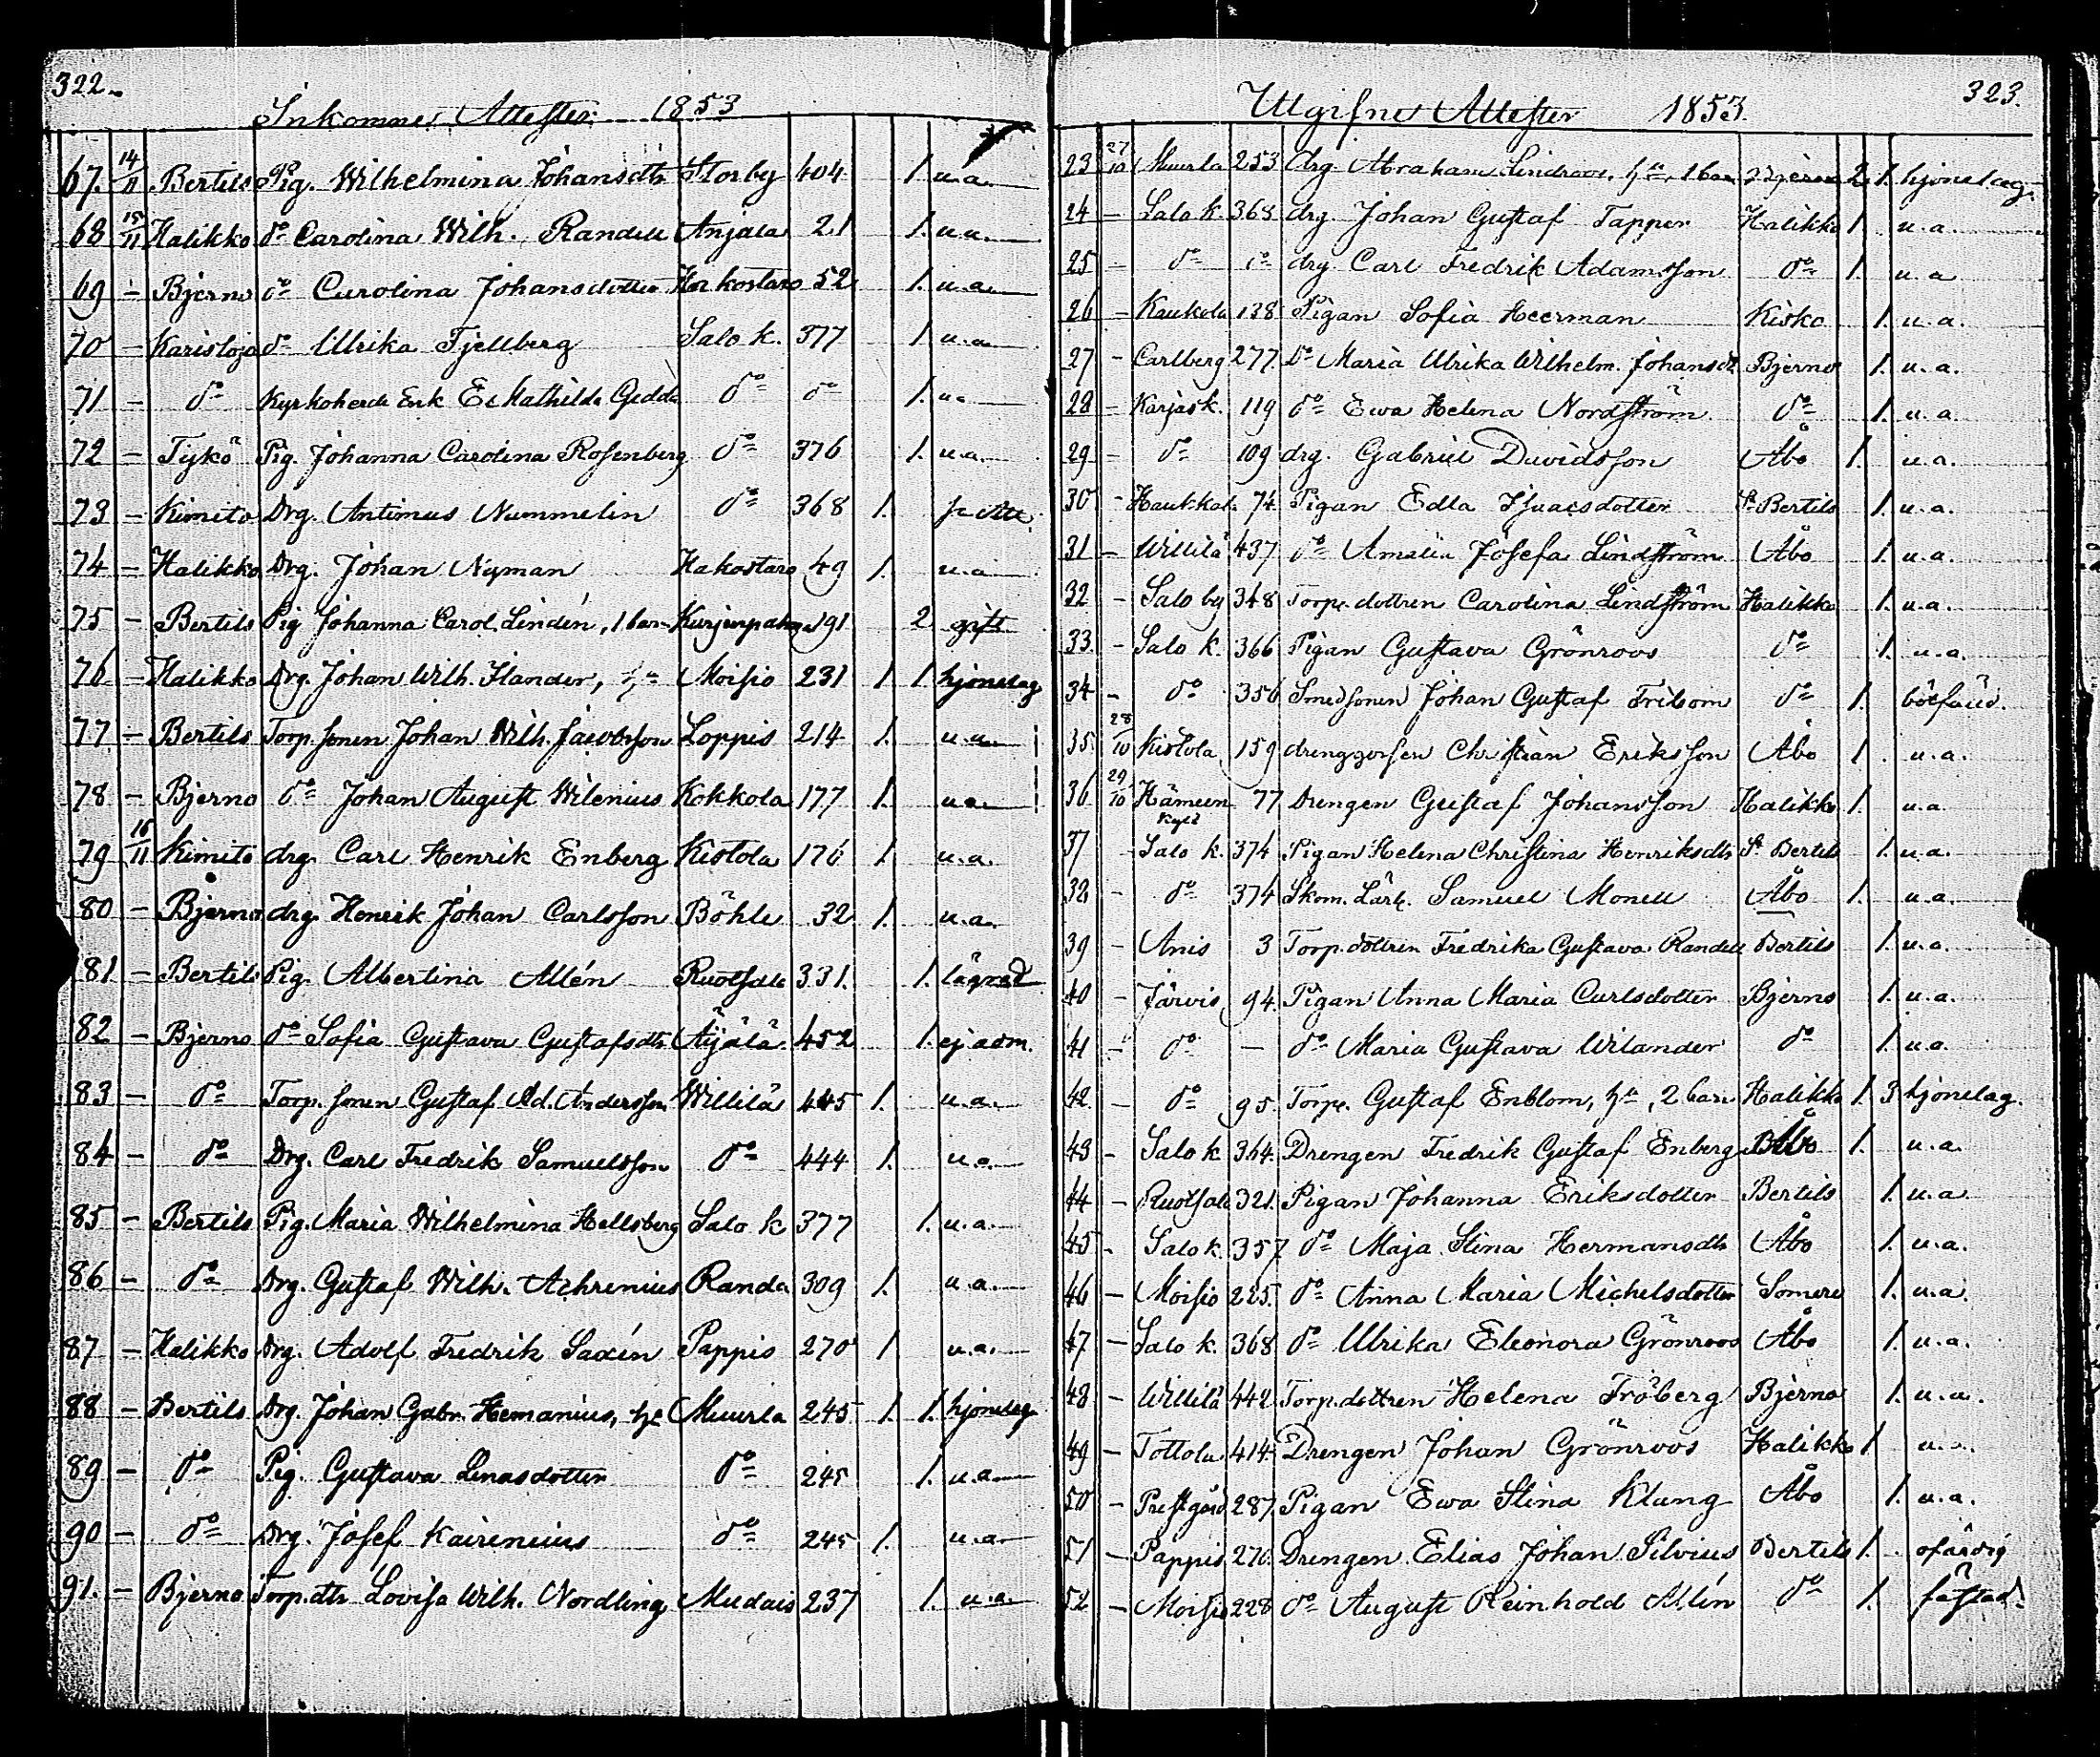 322.
Inkomne Attester 1853
67. 14/11 Bertils Pig. Wilhelmina Johansdtr Storby 404 1. u.a.
68 15/11 Halikko do Carolina Wilh. Randell Anjala 21 1. u.a.
69 - Bjerno do Carolina Johansdotter Hakostaro 52 1. u.a.
70 - Karislojo do Ulrika Fjellberg Salo k. 377 1. u.a.
71 - do Kyrkoherde Enk E. Mathilda Gedda do do 1. u.a.
72 - Tykö Pig. Johanna Carolina Rosenberg do 376 1. u.a.
73 - Kimito Drg. Antimus Nummelin do 368 1.
74 - Halikko Drg. Johan Nyman Hakostaro 49 1. u.a.
75 - Bertils Pig Johanna Carol. Lindén, 1 barn 191 2 gift
76 - Halikko Drg. Johan Wilh. Ilander, Moisio 231 1 1 hjonelag
77 - Bertils Torp. sonen Johan Wilh. Jacobsson Loppis 214 1. u.a.
78 - Bjerno do Johan August Wilenius Kokkola 177 1. u.a.
79 16/11 Kimito drg. Carl Henrik Enberg Kistola 176 1 u.a.
80 - Bjerno drg. Henrik Johan Carlsson Böhle 32 1. u.a.
81 - Bertils Pig. Albertina Allén Ruotsala 331. 1. lägrad
82 - Bjerno do Sofia Gustava Gustafsdtr Äijälä 452 1. ej adm.
83 - do Torp. sonen Gustaf Ad. Andersson Willilä 445 1. u.a.
84 - do Drg. Carl Fredrik Samuelsson do 444 1. u.a.
85 - Bertils Pig. Maria Wilhelmina Hellsberg Salo k 377 1. u.a.
86 - do Drg. Gustaf Wilh. Achrenius Randa 309 1. u.a.
87 - Halikko Drg. Adolf Fredrik Saxén Pappis 270 1 u.a.
88 - Bertils Drg. Johan Gabr. Hemanius, Muurla 245 1. 1. hjonelag
89 - do Pig. Gustava Linasdotter do 245 1. u.a.
90 - do Drg. Josef Kairenius do 245 1. u.a.
91. - Bjerno Torp. dtr Lovisa Wilh. Nordling Mudais 237 1. u.a.
323.
Utgifne Attester 1853.
23 27/10 Muurla 253 drg. Abraham Lindroos, 1 barn Bjerno 2 1. hjonelag
24 - Salo k. 368 drg. Johan Gustaf Tapper Halikko 1. u.a.
25 - do do drg. Carl Fredrik Adamsson do 1. u.a
26 - Kaukola 138 Pigan Sofia Heerman Kisko 1. u.a.
27 - Carlberg 277. do Maria Ulrika Wilhelm. Johansdtr Bjerno 1. u.a.
28 - Karjask. 119 do Ewa Helena Nordström do 1. u.a.
29 - do 109 drg. Gabriel Davidsson Åbo 1. u.a.
30 - 74 Pigan Edla Isaacsdotter St Bertils 1. u.a.
31 - Willilä 437 do Amalia Josefa Lindström Åbo 1. u.a.
32 - Salo by 348 Torp. dottren Carolina Lindström Halikko 1. u.a.
33. - Salo k. 366 Pigan Gustava Grönroos do 1. u.a.
34 - do 356 Smedsonen Johan Gustaf Fribom do 1.
35 28/10 Kistola 159 Christian Eriksson Åbo 1. u.a.
36 29/10 Hämeen kylä 77 Drengen Gustaf Johansson Halikko 1. u.a.
37 Salo k. 374 Pigan Helena Christina Henriksdtr St Bertils 1. u.a.
38 - do 374 Skom. Lärl. Samuel Monell Åbo 1. u.a.
39 - Anis 3 Torp. dottren Fredrika Gustava Randell Bertils 1. u.a.
40 - Järvis 94. Pigan Anna Maria Carlsdotter Bjerno 1. u.a.
41 - do - do Maria Gustava Wilander do 1. u.a.
42. - do 95. Torp. Gustaf Enblom, 2 barn Halikko 1. 3 hjonelag.
43 - Salo k 364. Drengen Fredrik Gustaf Enberg Åbo 1. u.a.
44 - Ruotsala 321. Pigan Johanna Eriksdotter Bertils 1. u.a.
45 - Salo k. 357 do Maja Stina Hermansdtr Åbo 1. u.a.
46 - Moisio 225. do Anna Maria Michelsdotter Somero 1. u.a.
47 - Salo k. 368 do Ulrika Eleonora Grönroos Åbo 1. u.a.
48 - Willilä 442. Torp. dottren Helena Fröberg Bjerno 1. u.a.
49 - Tottola 414. Drengen Johan Grönroos Halikko 1 u.a.
50 - Prestgård 287. Pigan Ewa Stina Klung Åbo 1. u.a.
51 - Pappis 270. Drengen Elias Johan Silvius Bertils 1. ofärdig
52 - Moisio 228 do August Reinhold Allén do 1. fästad.